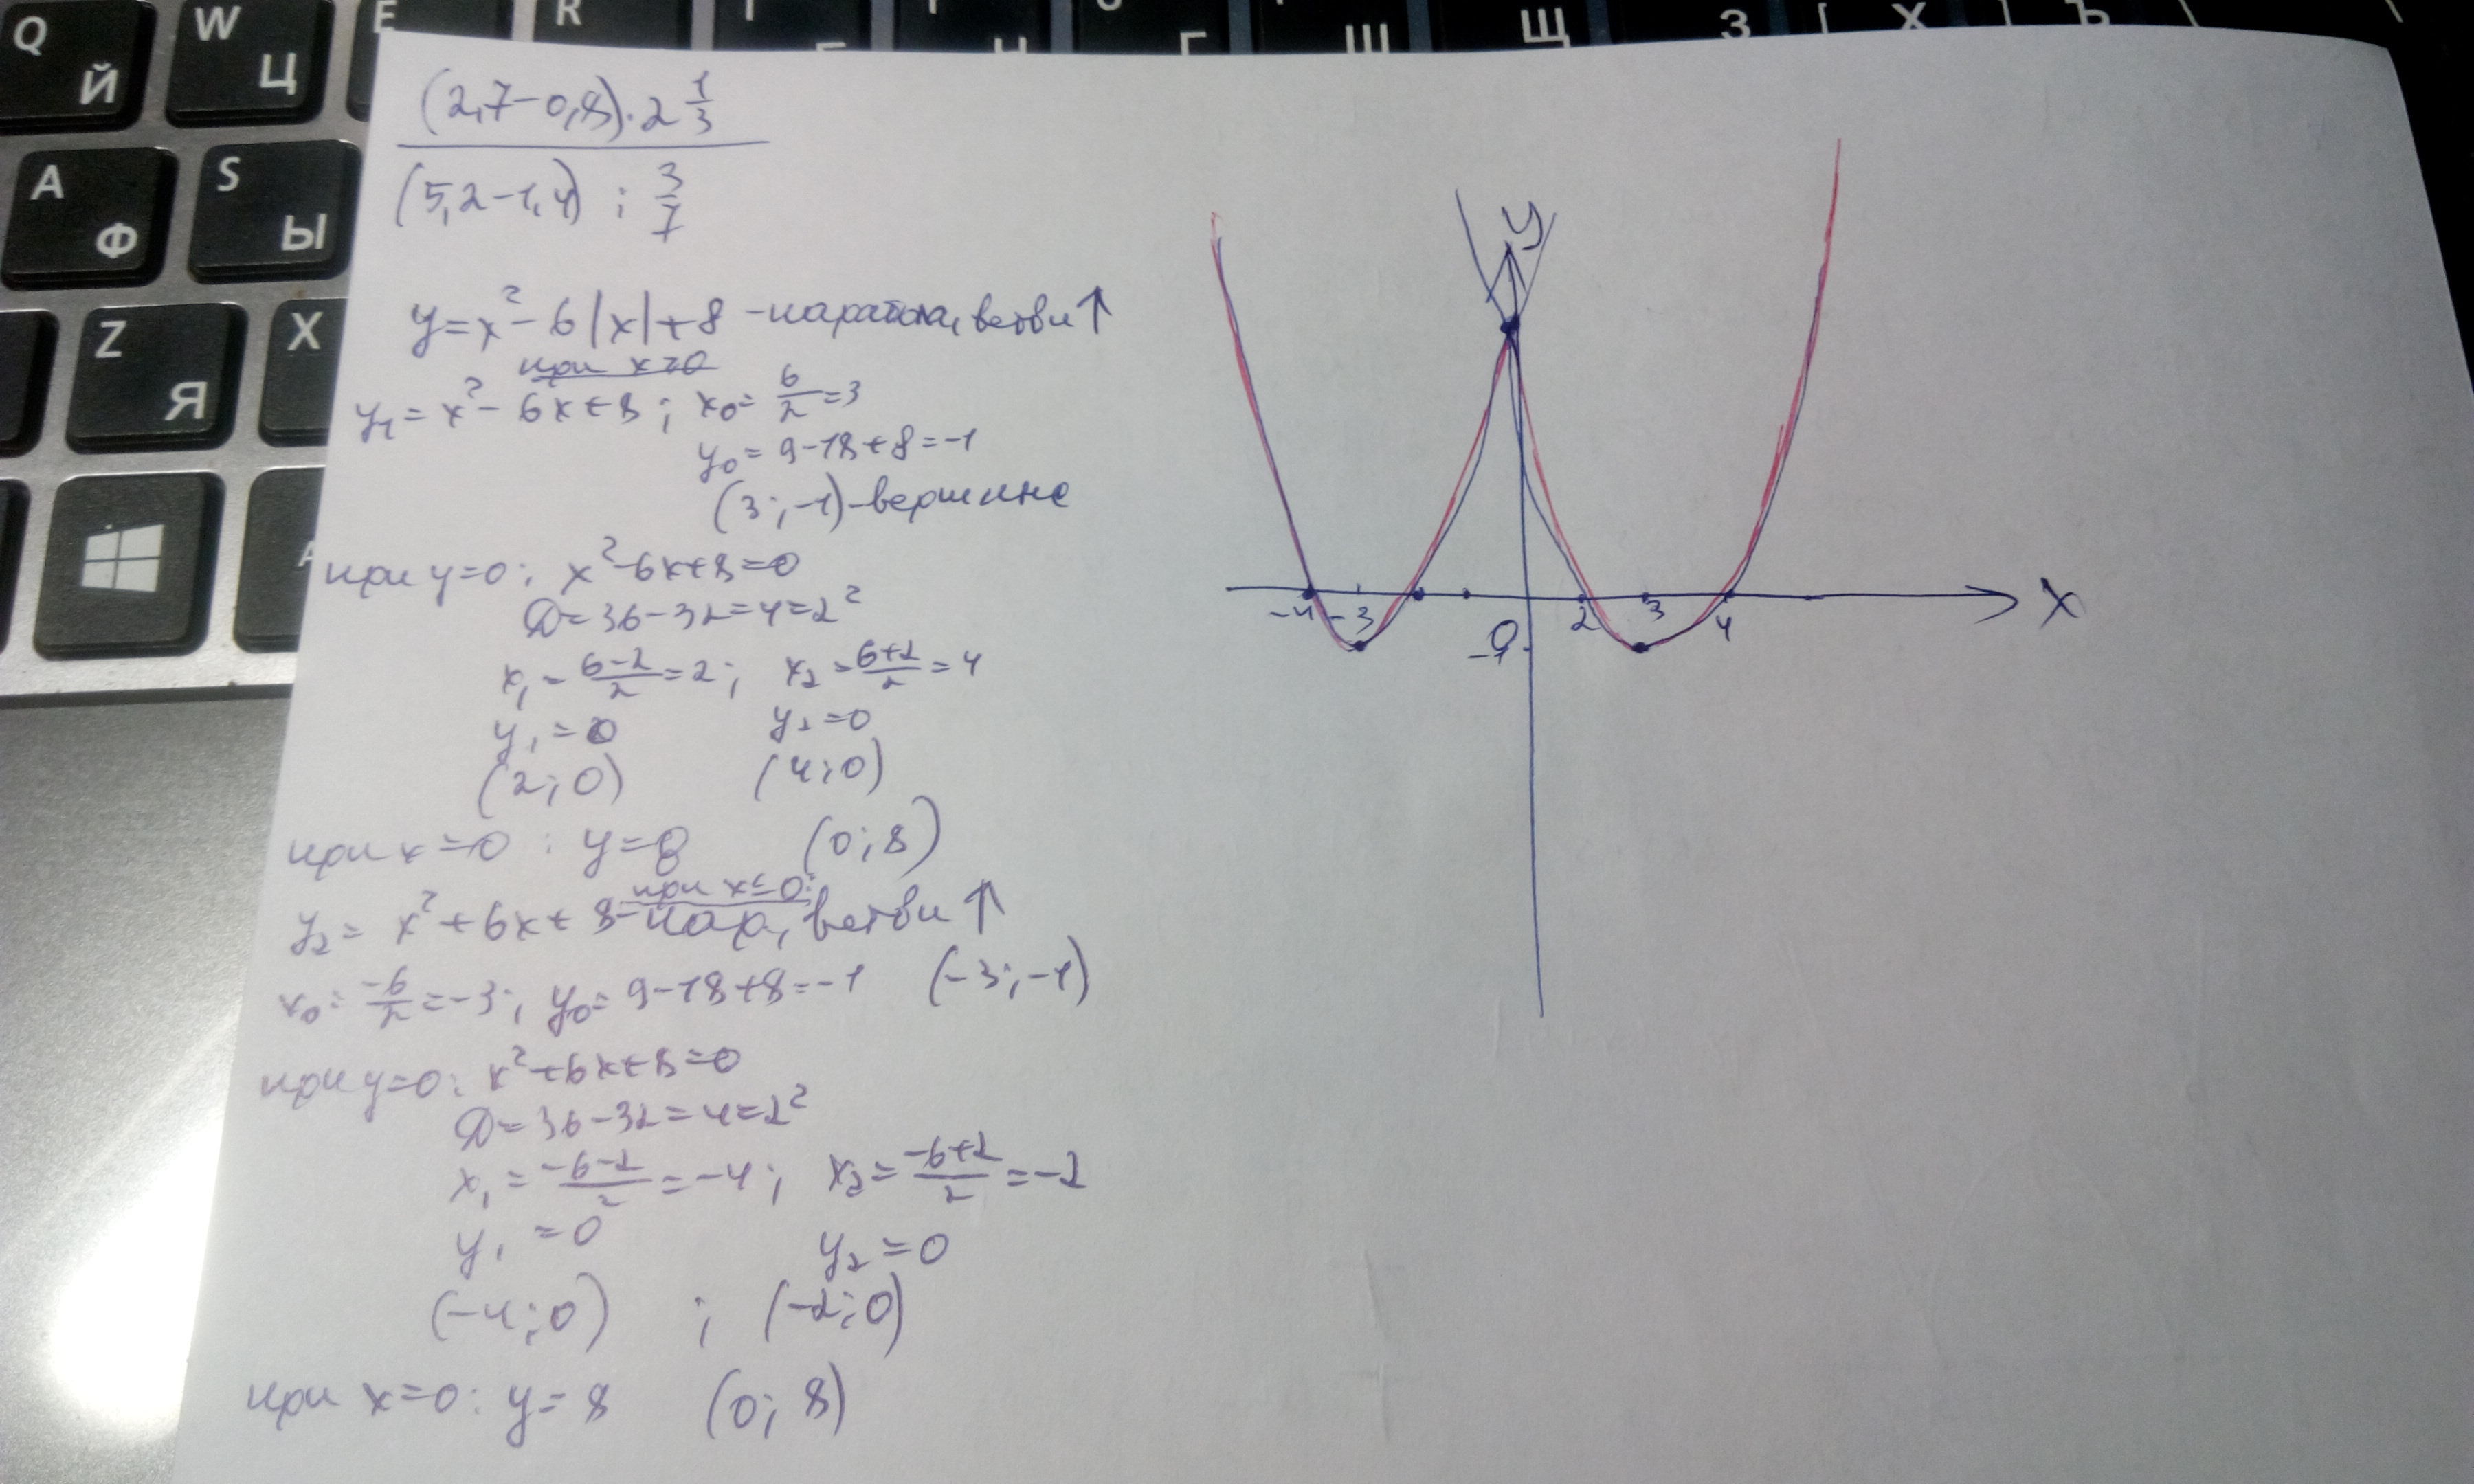 Q Й W Ц E R Г Ш Щ З [ Х ] Ъ \
A Ф S Ы
Z Я X
(2,7-0,8)·2 1/3
(5,2-1,4) : 3/7
y=x²-6|x|+8 -парабола, ветви ↑
при x≥0
y₁=x²-6x+8; x₀=6/2=3
y₀=9-18+8=-1
(3;-1)-вершина
при y=0: x²-6x+8=0
D=36-32=4=2²
x₁=(6-2)/2=2; x₂=(6+2)/2=4
y₁=0 y₂=0
(2;0) (4;0)
при x=0: y=8 (0;8)
при x≤0:
y₂=x²+6x+8-пар, ветви ↑
x₀=-6/2=-3; y₀=9-18+8=-1 (-3;-1)
при y=0: x²+6x+8=0
D=36-32=4=2²
x₁=(-6-2)/2=-4; x₂=(-6+2)/2=-2
y₁=0 y₂=0
(-4;0) ; (-2;0)
при x=0: y=8 (0;8)
y
-4 -3 2 3 4 x
0
-1